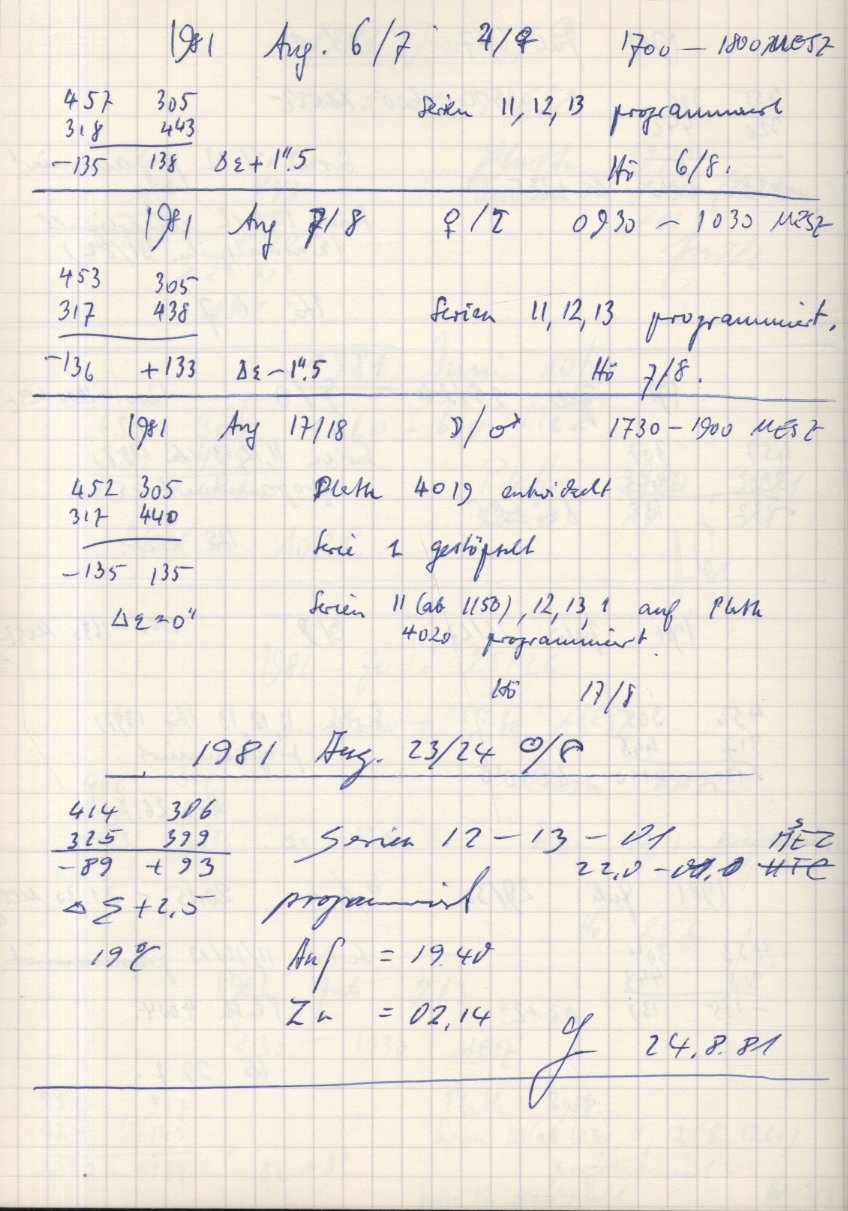 1981 Aug. 6/7 ♃/♀ 1700 — 1800 MESZ
457 305 Serien 11, 12, 13 programmiert
318 443
-135 138 Δε + 1".5 Hö 6/8.
1981 Aug 7/8 ♀/♄ 0930 — 1030 MESZ
453 305
317 438 Serien 11, 12, 13 programmiert.
-136 +133 Δε - 1".5 Hö 7/8.
1981 Aug 17/18 ☽/♂ 1730 — 1900 MESZ
452 305 Platte 4019 entwickelt
317 440
Serie 1 gestöpselt
-135 135
Δε = 0" Serien 11 (ab 1150), 12, 13, 1 auf Platte
4020 programmiert.
Hö 17/8
1981 Aug. 23/24 ☉/☽
414 306
325 399 Serien 12 — 13 — 01 MESZ
-89 +93 22,0 -
Δε + 2,5 programmiert
19°C Auf = 19.40
Zu = 02.14
24.8.81